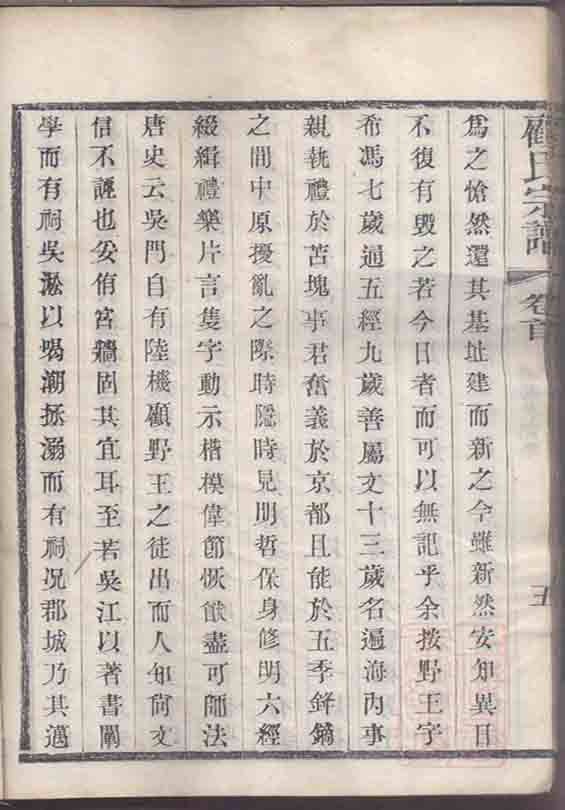 顧氏宗譜 卷首 五
爲之愴然還其基址建而新之今雖新然安知異日
不復有毀之若今日者而可以無記乎余按野王字
希馮七歲通五經九歲善屬文十三歲名遍海內事
親執禮於苫塊事君奮義於京都且能於五季鋒鏑
之間中原擾亂之際時隱時見明哲保身修明六經
綴緝禮樂片言隻字動示楷模偉節恢猷盡可師法
唐史云吳門自有陸機顧野王之徒出而人知尙文
信不誣也妥侑宮牆固其宜耳至若吳江以著書闡
學而有祠吳淞以喝潮拯溺而有祠况郡城乃其邁